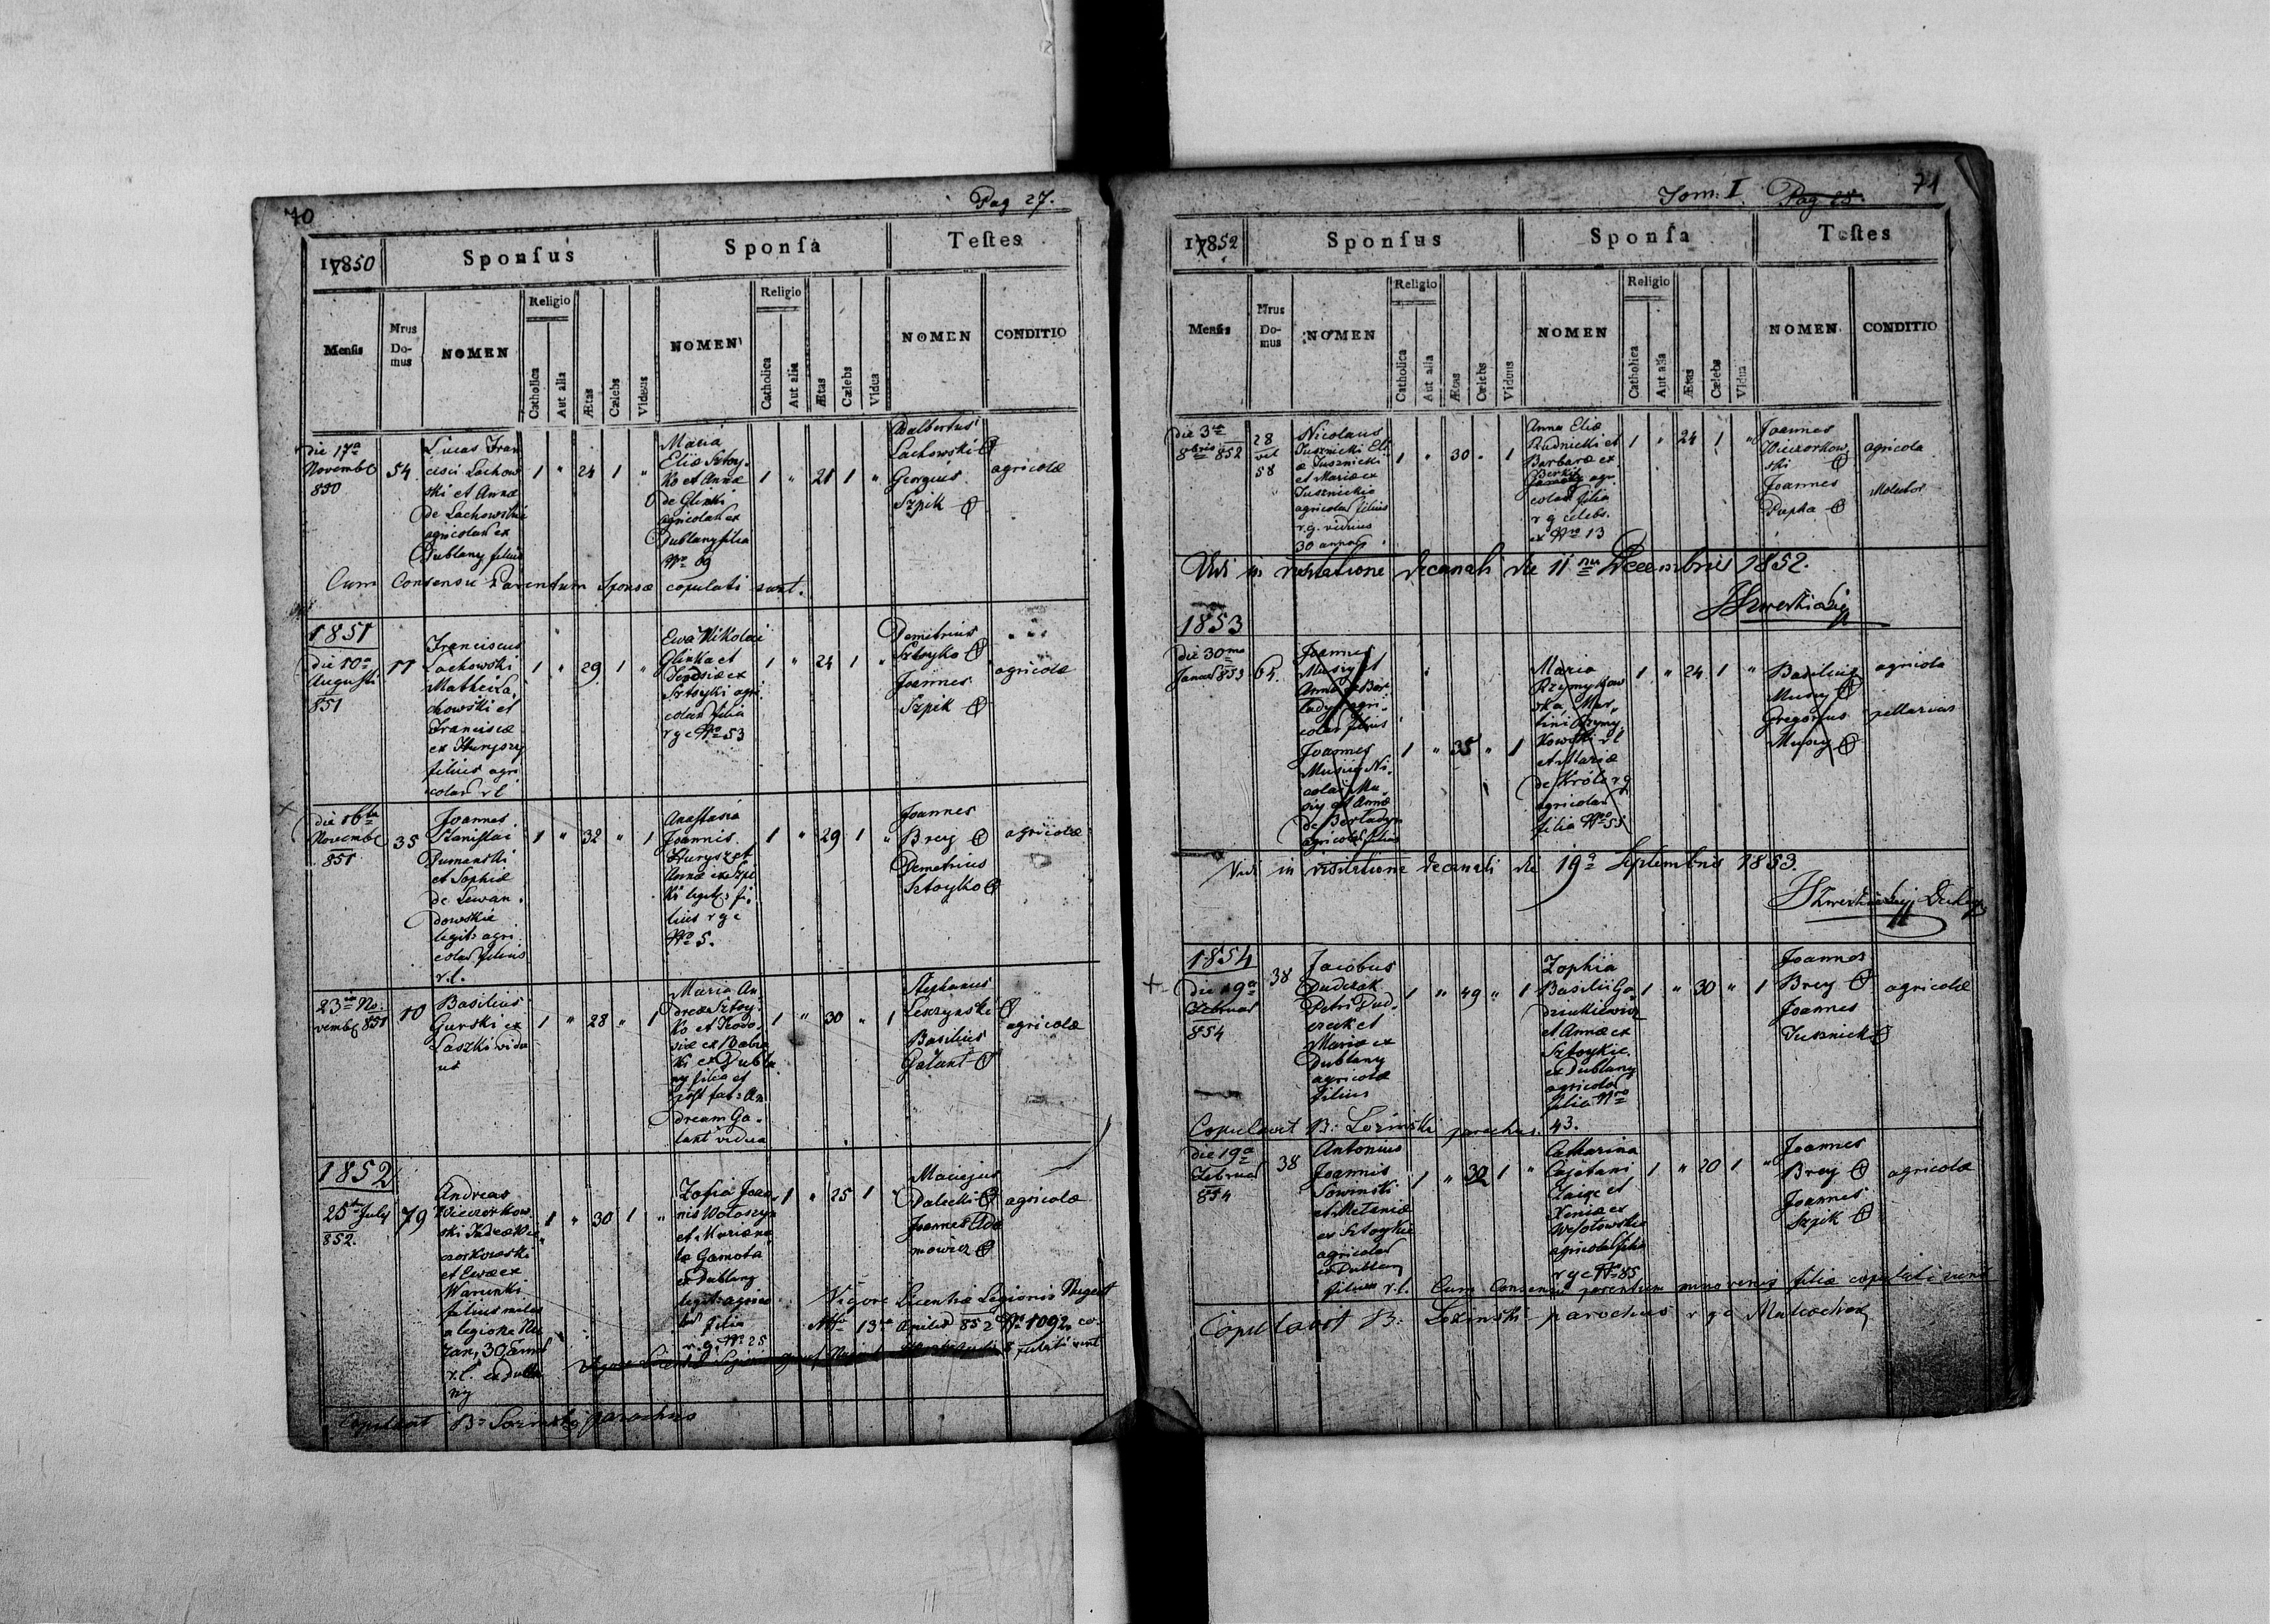 70
Pag 27.
17850
Sponsus
Sponsa
Testes
Mensis
Nrus Do-mus
NOMEN
Religio
Catholica
Aut alia
Ætas
Cælebs
Viduus
NOMEN
Religio
Catholica
Aut alia
Ætas
Cælebs
Vidua
NOMEN
CONDITIO
die 17a
Novembr
850
54
Lucas Fran
cisci Lachow
ski et Annæ
de Lachowskie
agricolar ex
Dublany filius
1 " 24 1 "
Maria
Eliæ Sztoy-
ko et Annæ
de Glinki
agricolar ex
Dublany filia
Nro 69
1 " 21 1 "
Adalbertus
Lachowski
Georgius
Szpik
agricolæ
Cum Consensu Parentum Sponsæ copulati sunt.
1851
die 10a
Augusti
851
11
Franciscus
Lachowski
Mathei La
chowski et
Franciscæ
ex
filius agri
colar r l
1 " 29 1 "
Ewa Nikolai
Glinka et
ex
Sztoyki agri
colar filia
r g c Nro 53
1 " 24 1 "
Demetrius
Sztoyko
Joannes
Szpik
agricolæ
die 16ta
Novembr
851
35
Joannes
Stanislai
Dumanski
et Sophiæ
de Lewan
dowskie
legit: agri
colar filius
r.l.
1 " 32 " 1
Anastasia
Joannis
et
Annæ ex Szpi
ki legit: fi
lius r g c
Nro 5.
1 " 29 1 "
Joannes
Brey
Demetrius
Sztoyko
agricolæ
23 No
vembr 851
10
Basilius
Gurski ex
Laszki vidu
us
1 " 28 " 1
Maria An
dreæ Sztoy
ko et
ex
ki ex Dubla
ny filia et
post fat: An
dream Ga
lant vidua
1 " 30 " 1
Stephanus
Leszczynski
Basilius
Galant
agricolæ
1852
25 July
852.
79
Andreas
Wieczorkow
ski
et Ewæ ex
Warunki
filius miles
a legione
30 annor
r.l. ex Dubla
ny
1 " 30 1 "
Zofia Joan
nis Wołoszyn
et Marianæ
ex Dublany
legit: agrico
lar filia
r.g. Nro 25
1 " 25 1
Maciejus
Palecki
Joannes Ada
mowicz
agricolæ
Vigore Licentiæ Legionis Nugent
13 Aprilis 852 Nro 1092 co
pulati sunt
Copulavit B: Łozinski parochus
Tom: I Pag 28.
71
17852
Sponsus
Sponsa
Testes
Mensis
Nrus Do-mus
NOMEN
Religio
Catholica
Aut alia
Ætas
Cælebs
Viduus
NOMEN
Religio
Catholica
Aut alia
Ætas
Cælebs
Vidua
NOMEN
CONDITIO
die 3
852
28
vel
58
Nicolaus
Jusznicki Eli
æ Jusznicki
et Mariæ ex
Jusznickie
agricolar filius
r.g. viduus
30 annor
1 " 30 " 1
Anna Eliæ
Rudnicki et
Barbaræ ex
agri
colar filia
r g celebs
ex Nro 13
1 " 24 1 "
Joannes
Wieczorkow
ski
Joannes
Dupha
agricola
Molitor
Vidi in visitatione decanali die 11ma Decembris 1852.
1853
die 30ma
Januar 853
65
Joannes
Musiy et
Annæ de Ber
ladyn agri
colar filius
Joannes
Musiy Ni
colai Mu
siy et Annæ
de Berladyn
agricolar filius
1 " 35 " 1
Maria
Rzymykow
ska, Mar
tini Rzymy
kowski r l
et Mariæ
de Król r g
agricolar
filia Nro 53
1 " 24 1 "
Basilius
Musiy
Gregorius
Musiy
agricola
pellarius
Vidi in visitatione decanali die 19a Septembris 1853.
1854
die 19a
Februar
854
38
Jacobus
Dudczak
Petri Dud
czak et
Mariæ ex
Dublany
agricolæ
filius
1 " 49 " 1
Zophia
Basilii Ga
dziukiewicz
et Annæ ex
Sztoykie
ex Dublany
agricolar
filia Nro
43.
1 " 30 " 1
Joannes
Brey
Joannes
Jusznicki
agricolæ
Copulavit B: Łozinski parochus.
die 19a
Februar
854
38
Antonius
Joannis
Sowinski
et Metaniæ
ex Sztoykie
agricolar
ex Dublany
filius r.l.
1 " 32 1 "
Catharina
Cajetani
Zaize et
Xeniæ ex
Wesołowskie
agricolar filia
r g c Nr 85
1 " 20 1 "
Joannes
Brey
Joannes
Szpik
agricolæ
Cum Consensu parentum minorenis filiæ copulati sunt
Copulavit B: Łozinski parochus r g c